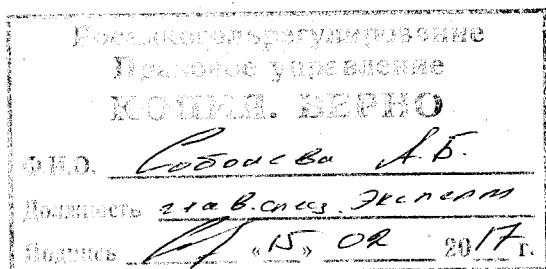 Росалкогольрегулирование
Правовое управление
КОПИЯ. ВЕРНО
Ф.И.О. А.Б.
Должность глав.спец. Эксперт
Подпись «15» 02 2017 г.